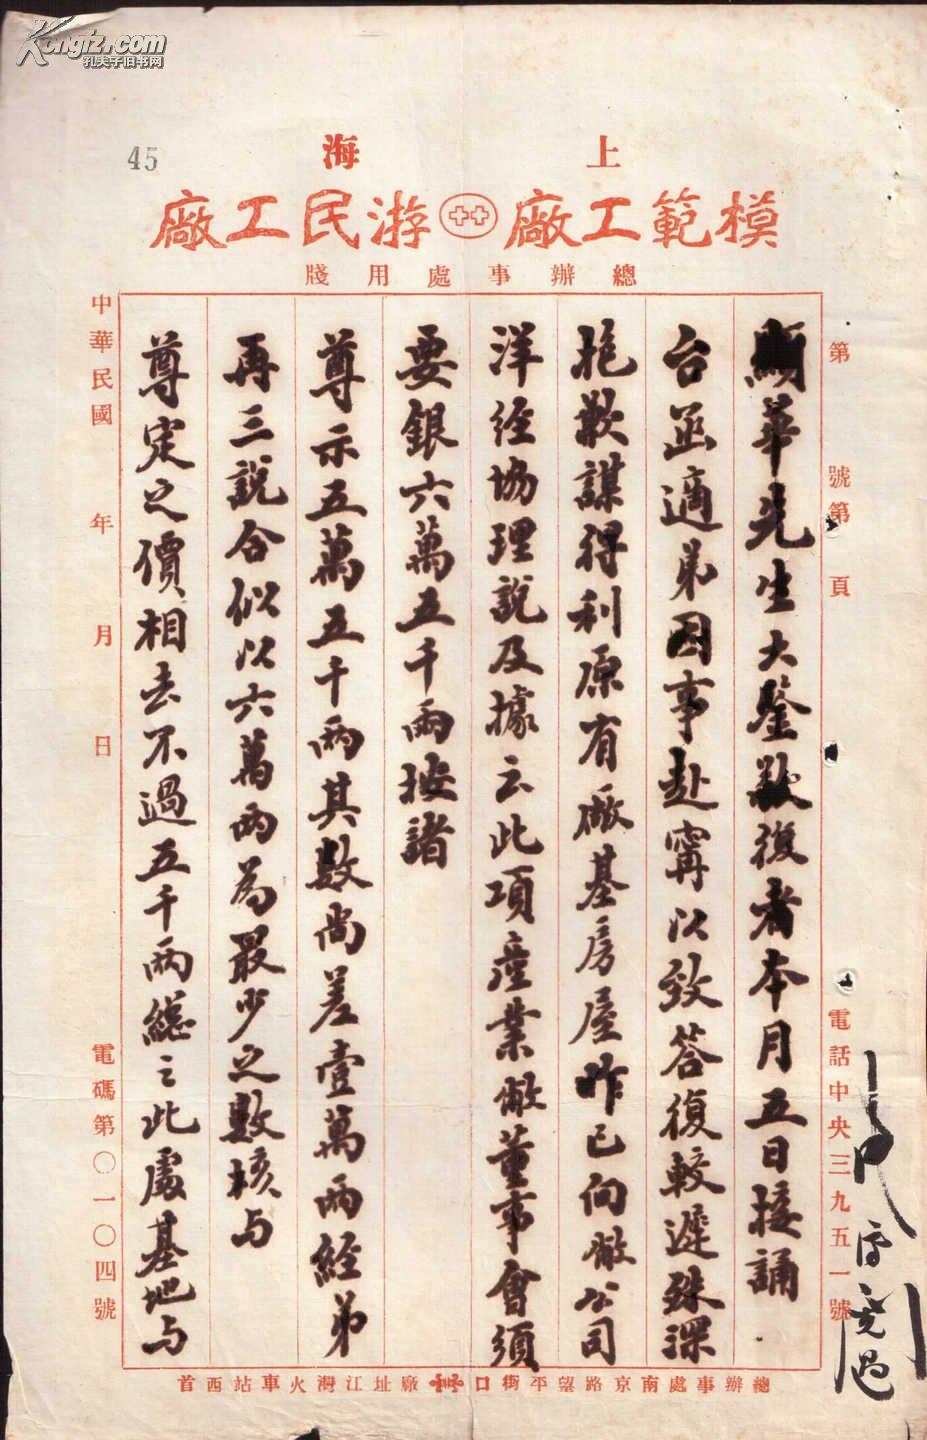 Kongfz.com
孔夫子旧书网
45
上海
模範工廠 游民工廠
總辦事處用牋
第 號第 頁
電話中央三九五一號
顯華先生大鑒敬復者本月五日接誦
台函適弟因事赴寧以致答復較遲殊深
抱歉謀得利原有廠基房屋昨已向敝公司
洋經協理說及據云此項產業敝董事會須
要銀六萬五千兩按諸
尊示五萬五千兩其數尚差壹萬兩經弟
再三說合似以六萬兩為最少之數核与
尊定之價相去不過五千兩總之此處基地与
中華民國 年 月 日
電碼第〇一〇四號
總辦事處南京路望平街口 廠址江灣火車站西首